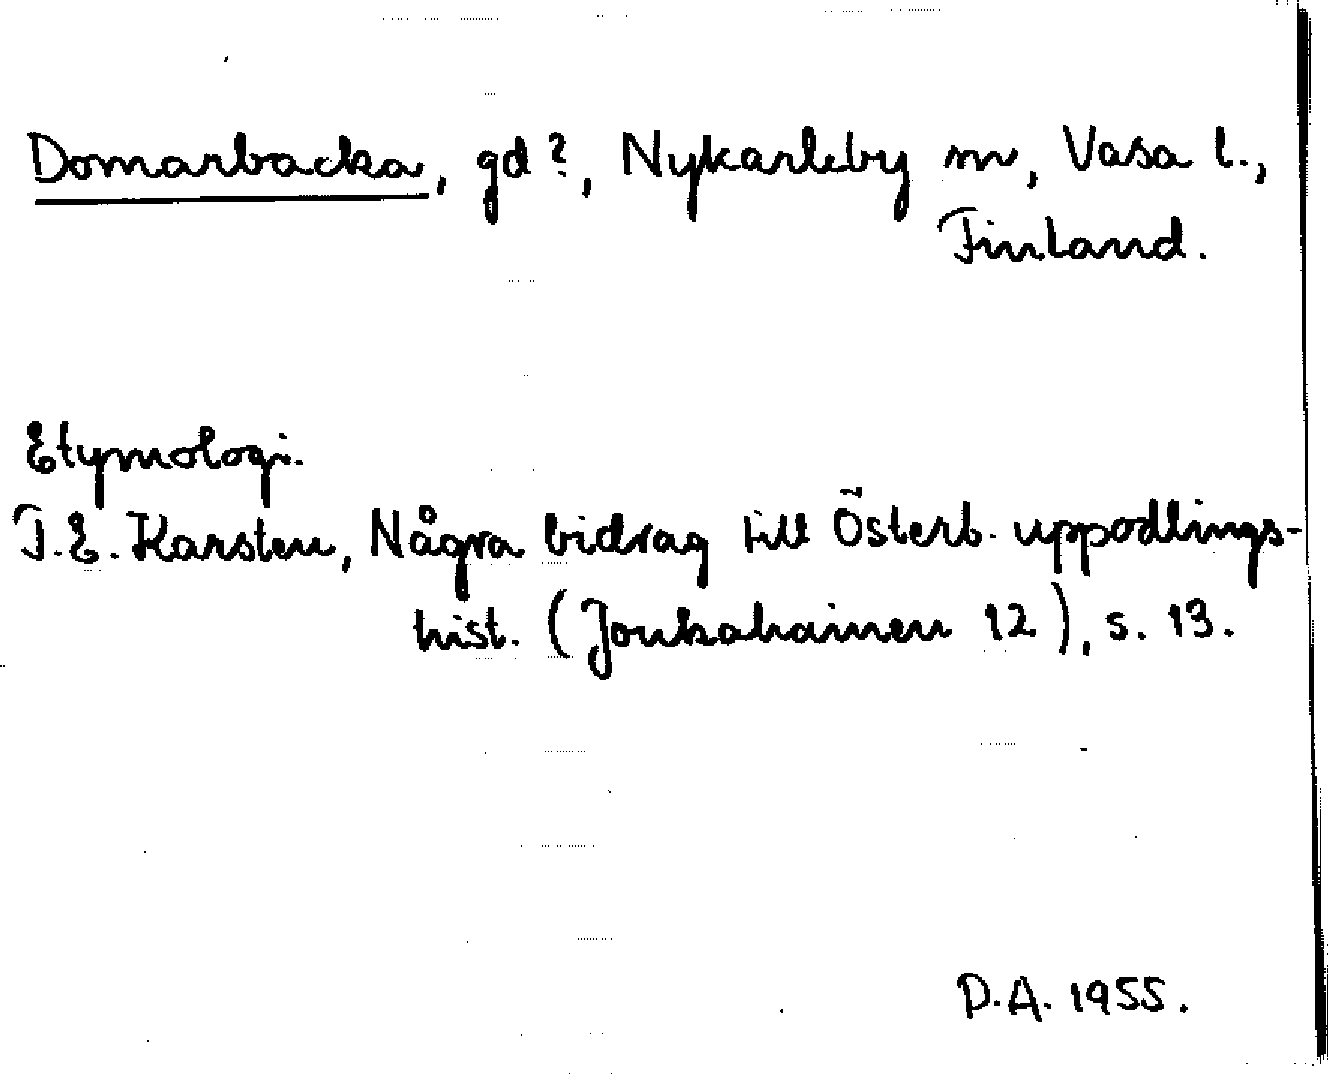 Domarbacka, gd?, Nykarleby sn, Vasa l.,
Finland.
Etymologi.
T.E. Karsten, Några bidrag till Österb. uppodlings-
hist. (Joukahainen 12), s. 13.
D.A. 1955.